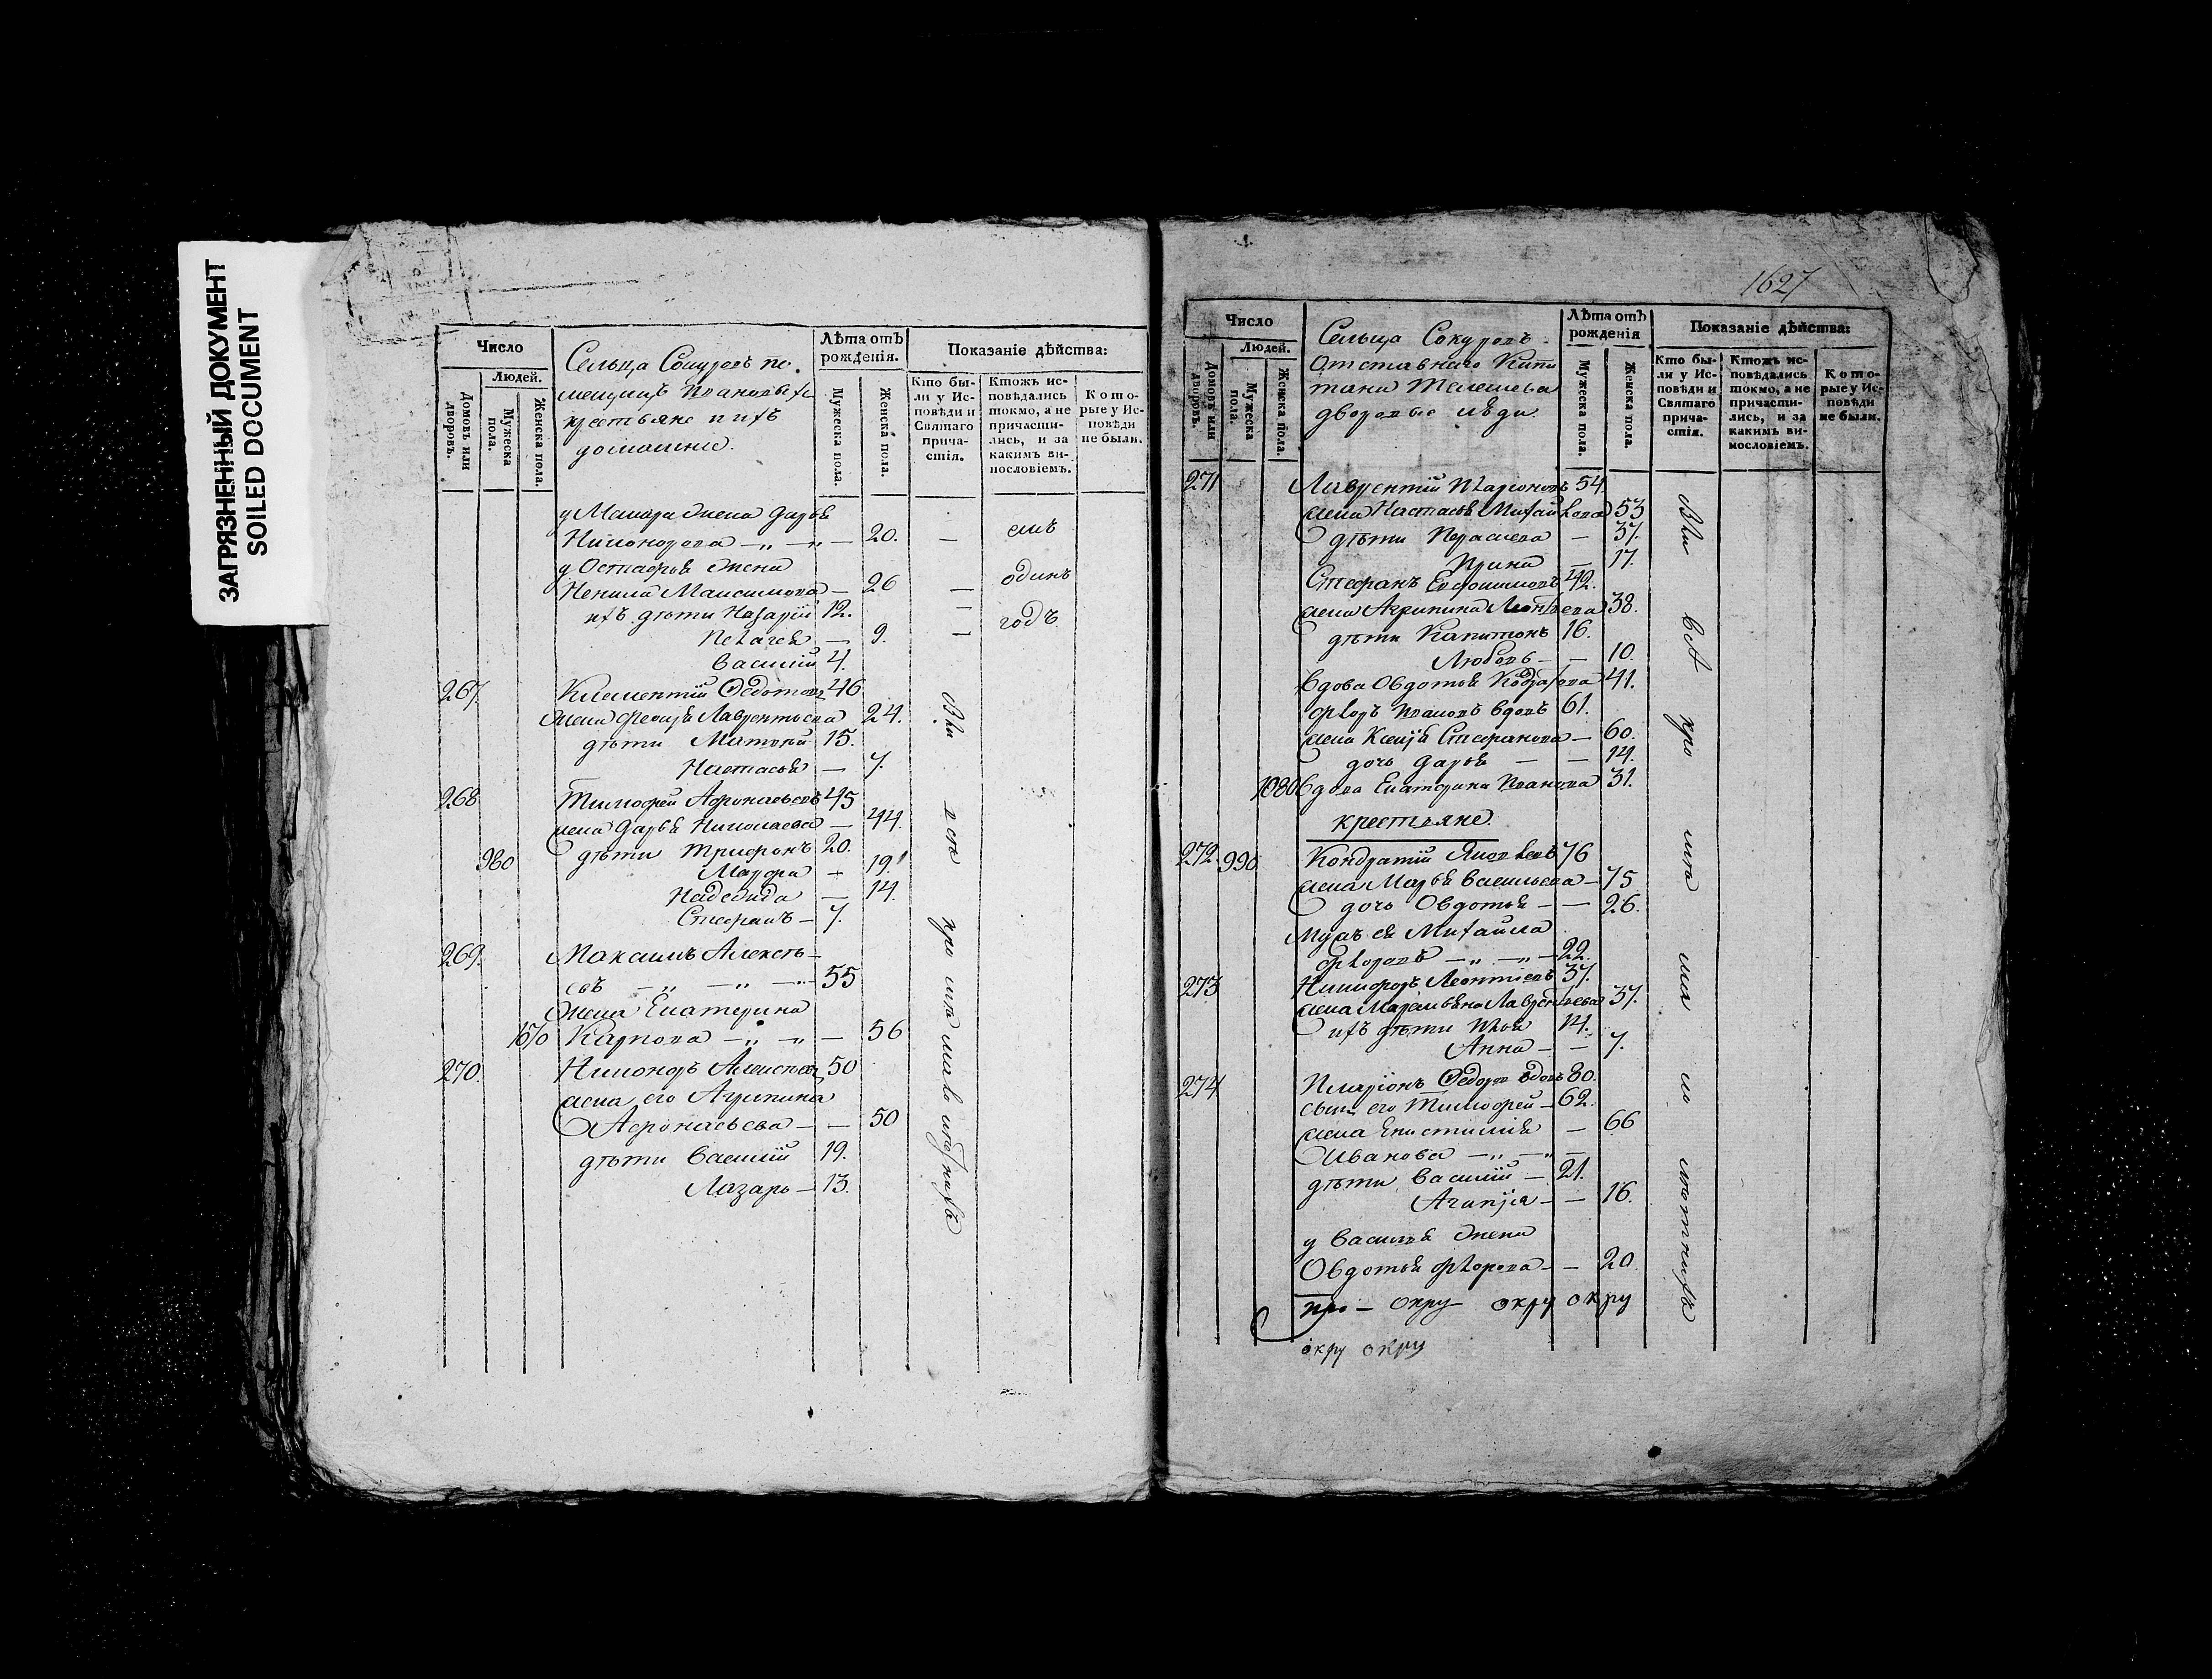 ЗАГРЯЗНЕННЫЙ ДОКУМЕНТ
SOILED DOCUMENT
Число
Людей.
Домовъ или дворовъ.
Мужеска пола.
Женска пола.
Сельца Сокуровъ по
мещицъ Ивановыхъ
крестьяне и ихъ
домашние.
Лѣта отъ рожденія.
Мужеска пола.
Женска пола.
Показаніе дѣйства:
Кто бы-
ли у Ис-
повѣди и
Святаго
прича-
стія.
Ктожъ ис-
повѣдались
токмо, а не
причасти-
лись, и за
какимъ ви-
нословіемъ.
Кото-
рые у Ис-
повѣди
не были.
у Макара жена Дарья
Никонорова — 20. —
у Остафья жена
Ненила Максимова — 26 — одинъ
ихъ дѣти Назарій 12. — годъ
Пелагея — 9. —
Василій 4.
267. Климентій Федотовъ 46
жена Феоція Лаврентьева 24.
дѣти Матвей 15.
Настасья — 7.
268 Тимофей Афонасьевъ 45
жена Дарья Николаева — 44.
980 дѣти Трифонъ 20.
Марфа — 19
Надежда — 14.
Стефанъ — 7.
269. Максимъ Алексѣ-
евъ — 55
жена Екатерина
1070 Карпова — 56
270. Никоноръ Алексѣевъ 50
жена его Агрипина
Афонасьева — — 50
дѣти Василій 19.
Лазарь — 13.
1627
Число
Людей.
Домовъ или дворовъ.
Мужеска пола.
Женска пола.
Сельца Сокуровъ
отставнаго Капи
тана Телешева
дворовые люди.
Лѣта отъ рожденія
Мужеска пола.
Женска пола.
Показаніе дѣйства:
Кто бы-
ли у Ис-
повѣди и
Святаго
прича-
стія.
Ктожъ ис-
повѣдались
токмо, а не
причасти-
лись, и за
какимъ ви-
нословіемъ.
Кото-
рые у Ис-
повѣди
не были.
271 Лаврентій Иларионовъ 54.
жена Настасья Михайлова 53
дѣти — 37.
Ирина — 17.
Стефанъ Евфимовъ 42.
жена Агрипина Леонтьева 38.
дѣти Капитонъ 16.
Любовь — — 10.
вдова Овдотья 41.
Флоръ Ивановъ вдовъ 61.
жена Ксенія Стефанова — 60.
дочь Дарья — — 14.
1080 вдова Екатерина Иванова 31.
крестьяне.
272. 990 Кондратій Яковлевъ 76
жена Марья Васильева — 75
дочь Овдотья — — 26.
Мужъ ея Михайла
Флоровъ — 22.
273 Никифоръ Леонтіевъ 37.
жена Лаврентьева 37.
ихъ дѣти Илья 14.
Анна — — 7.
274 Иларіонъ Федоровъ вдовъ 80.
сынъ его Тимофей — 62.
жена Епистимія — 66
Иванова —
дѣти Василій — 21.
Агапія — — 16.
у Василья жена
Овдотья Флорова — — 20.
про — окру — окру окру
окру окру